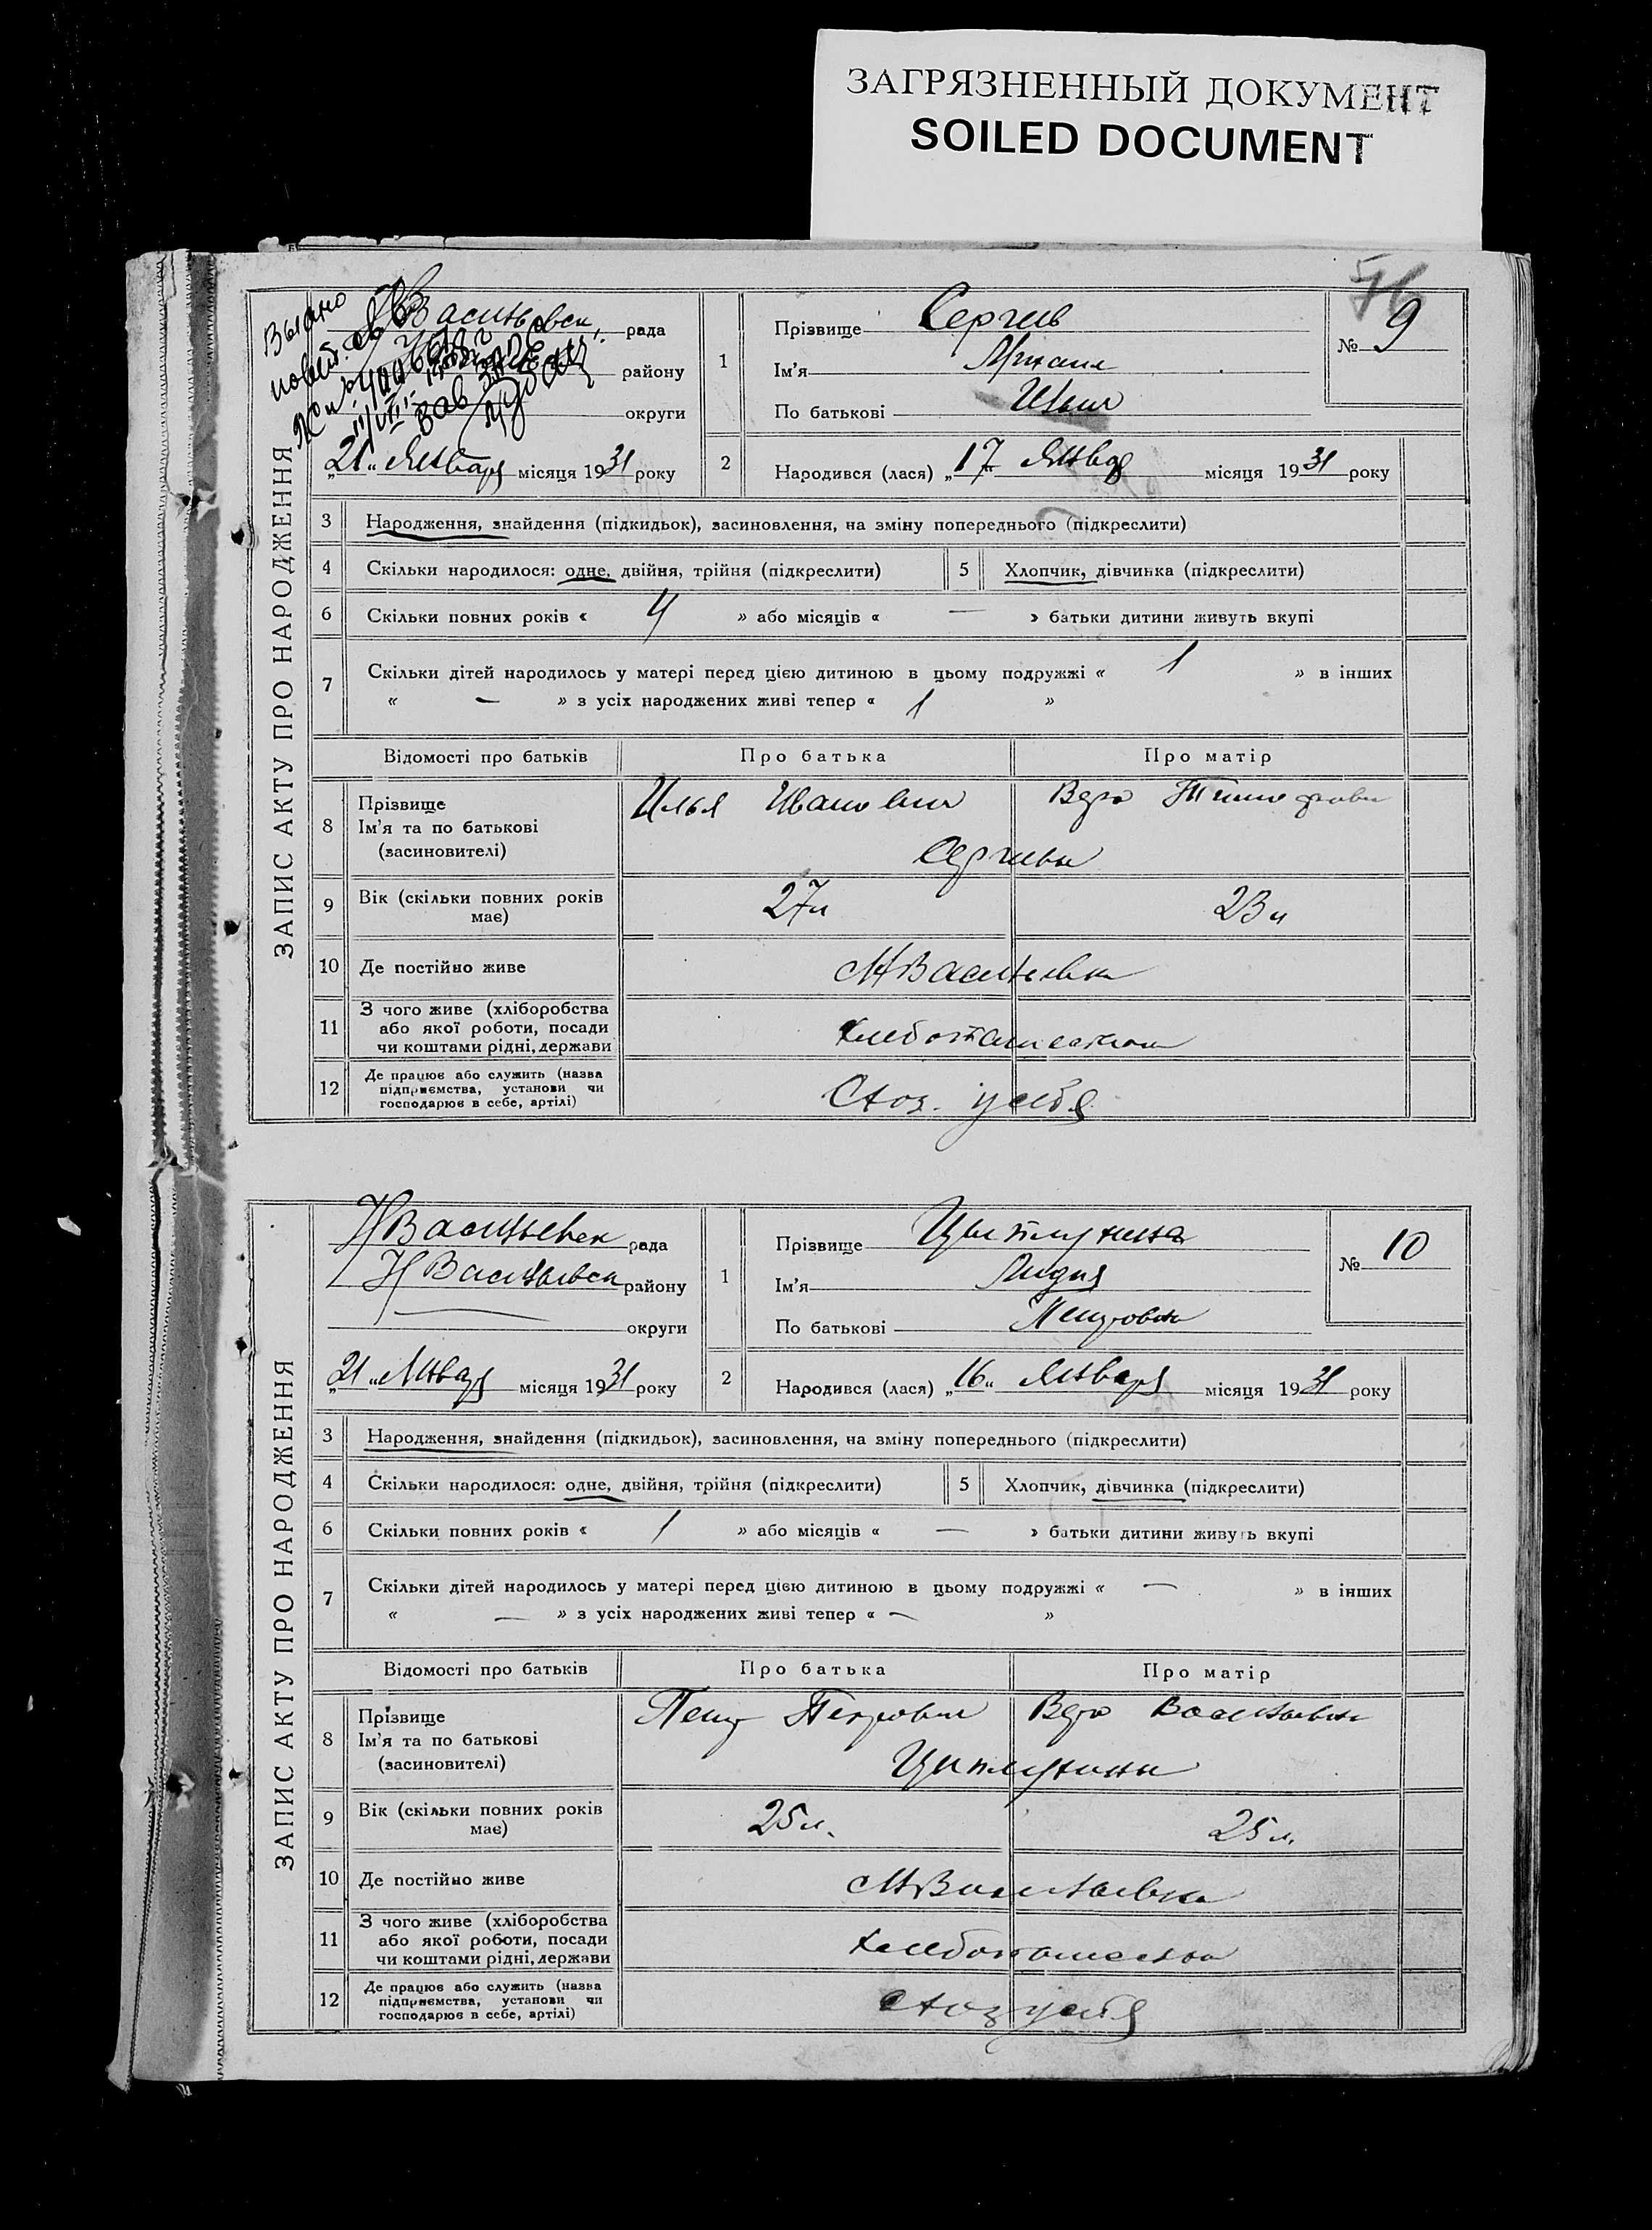 ЗАГРЯЗНЕННЫЙ ДОКУМЕНТ
SOILED DOCUMENT
ЗАПИС АКТУ ПРО НАРОДЖЕННЯ
Выдано
рада
району
округи
„21“ Января місяця 1931 року
1
Прізвище Сергеев
Ім'я Михаил
По батькові Ильич
№ 9
2
Народився (лася) „17“ Января місяця 1931 року
3 Народження, знайдення (підкидьок), засиновлення, на зміну попереднього (підкреслити)
4 Скільки народилося: одне, двійня, трійня (підкреслити) 5 Хлопчик, дівчинка (підкреслити)
6 Скільки повних років « 4 » або місяців « — » батьки дитини живуть вкупі
7 Скільки дітей народилось у матері перед цією дитиною в цьому подружжі « 1 » в інших
« — » з усіх народжених живі тепер « 1 »
Відомості про батьків Про батька Про матір
8 Прізвище Ім'я та по батькові (засновителі)
Илья Иванович Вера Тимофеевна
Сергеевы
9 Вік (скільки повних років має) 27 л 23 л
10 Де постійно живе НВасильевка
11 З чого живе (хліборобства або якої роботи, посади чи коштами рідні, держави
Хлебопашеством
12 Де працює або служить (назва підприємства, установи чи господарює в себе, артілі)
у себя
ЗАПИС АКТУ ПРО НАРОДЖЕННЯ
НВасильевск рада
НВасильевск району
округи
„21“ Января місяця 1931 року
1
Прізвище
Ім'я Лидия
По батькові Петровна
№ 10
2
Народився (лася) „16“ Января місяця 1931 року
3 Народження, знайдення (підкидьок), засиновлення, на зміну попереднього (підкреслити)
4 Скільки народилося: одне, двійня, трійня (підкреслити) 5 Хлопчик, дівчинка (підкреслити)
6 Скільки повних років « 1 » або місяців « — » батьки дитини живуть вкупі
7 Скільки дітей народилось у матері перед цією дитиною в цьому подружжі « — » в інших
« — » з усіх народжених живі тепер « — »
Відомості про батьків Про батька Про матір
8 Прізвище Ім'я та по батькові (засиновителі)
Петр Петрович Вера Васильевна
9 Вік (скільки повних років має) 25 л. 25 л.
10 Де постійно живе НВасильевка
11 З чого живе (хліборобства або якої роботи, посади чи коштами рідні, держави
Хлебопашеством
12 Де працює або служить (назва підприємства, установи чи господарює в себе, артілі)
у себя